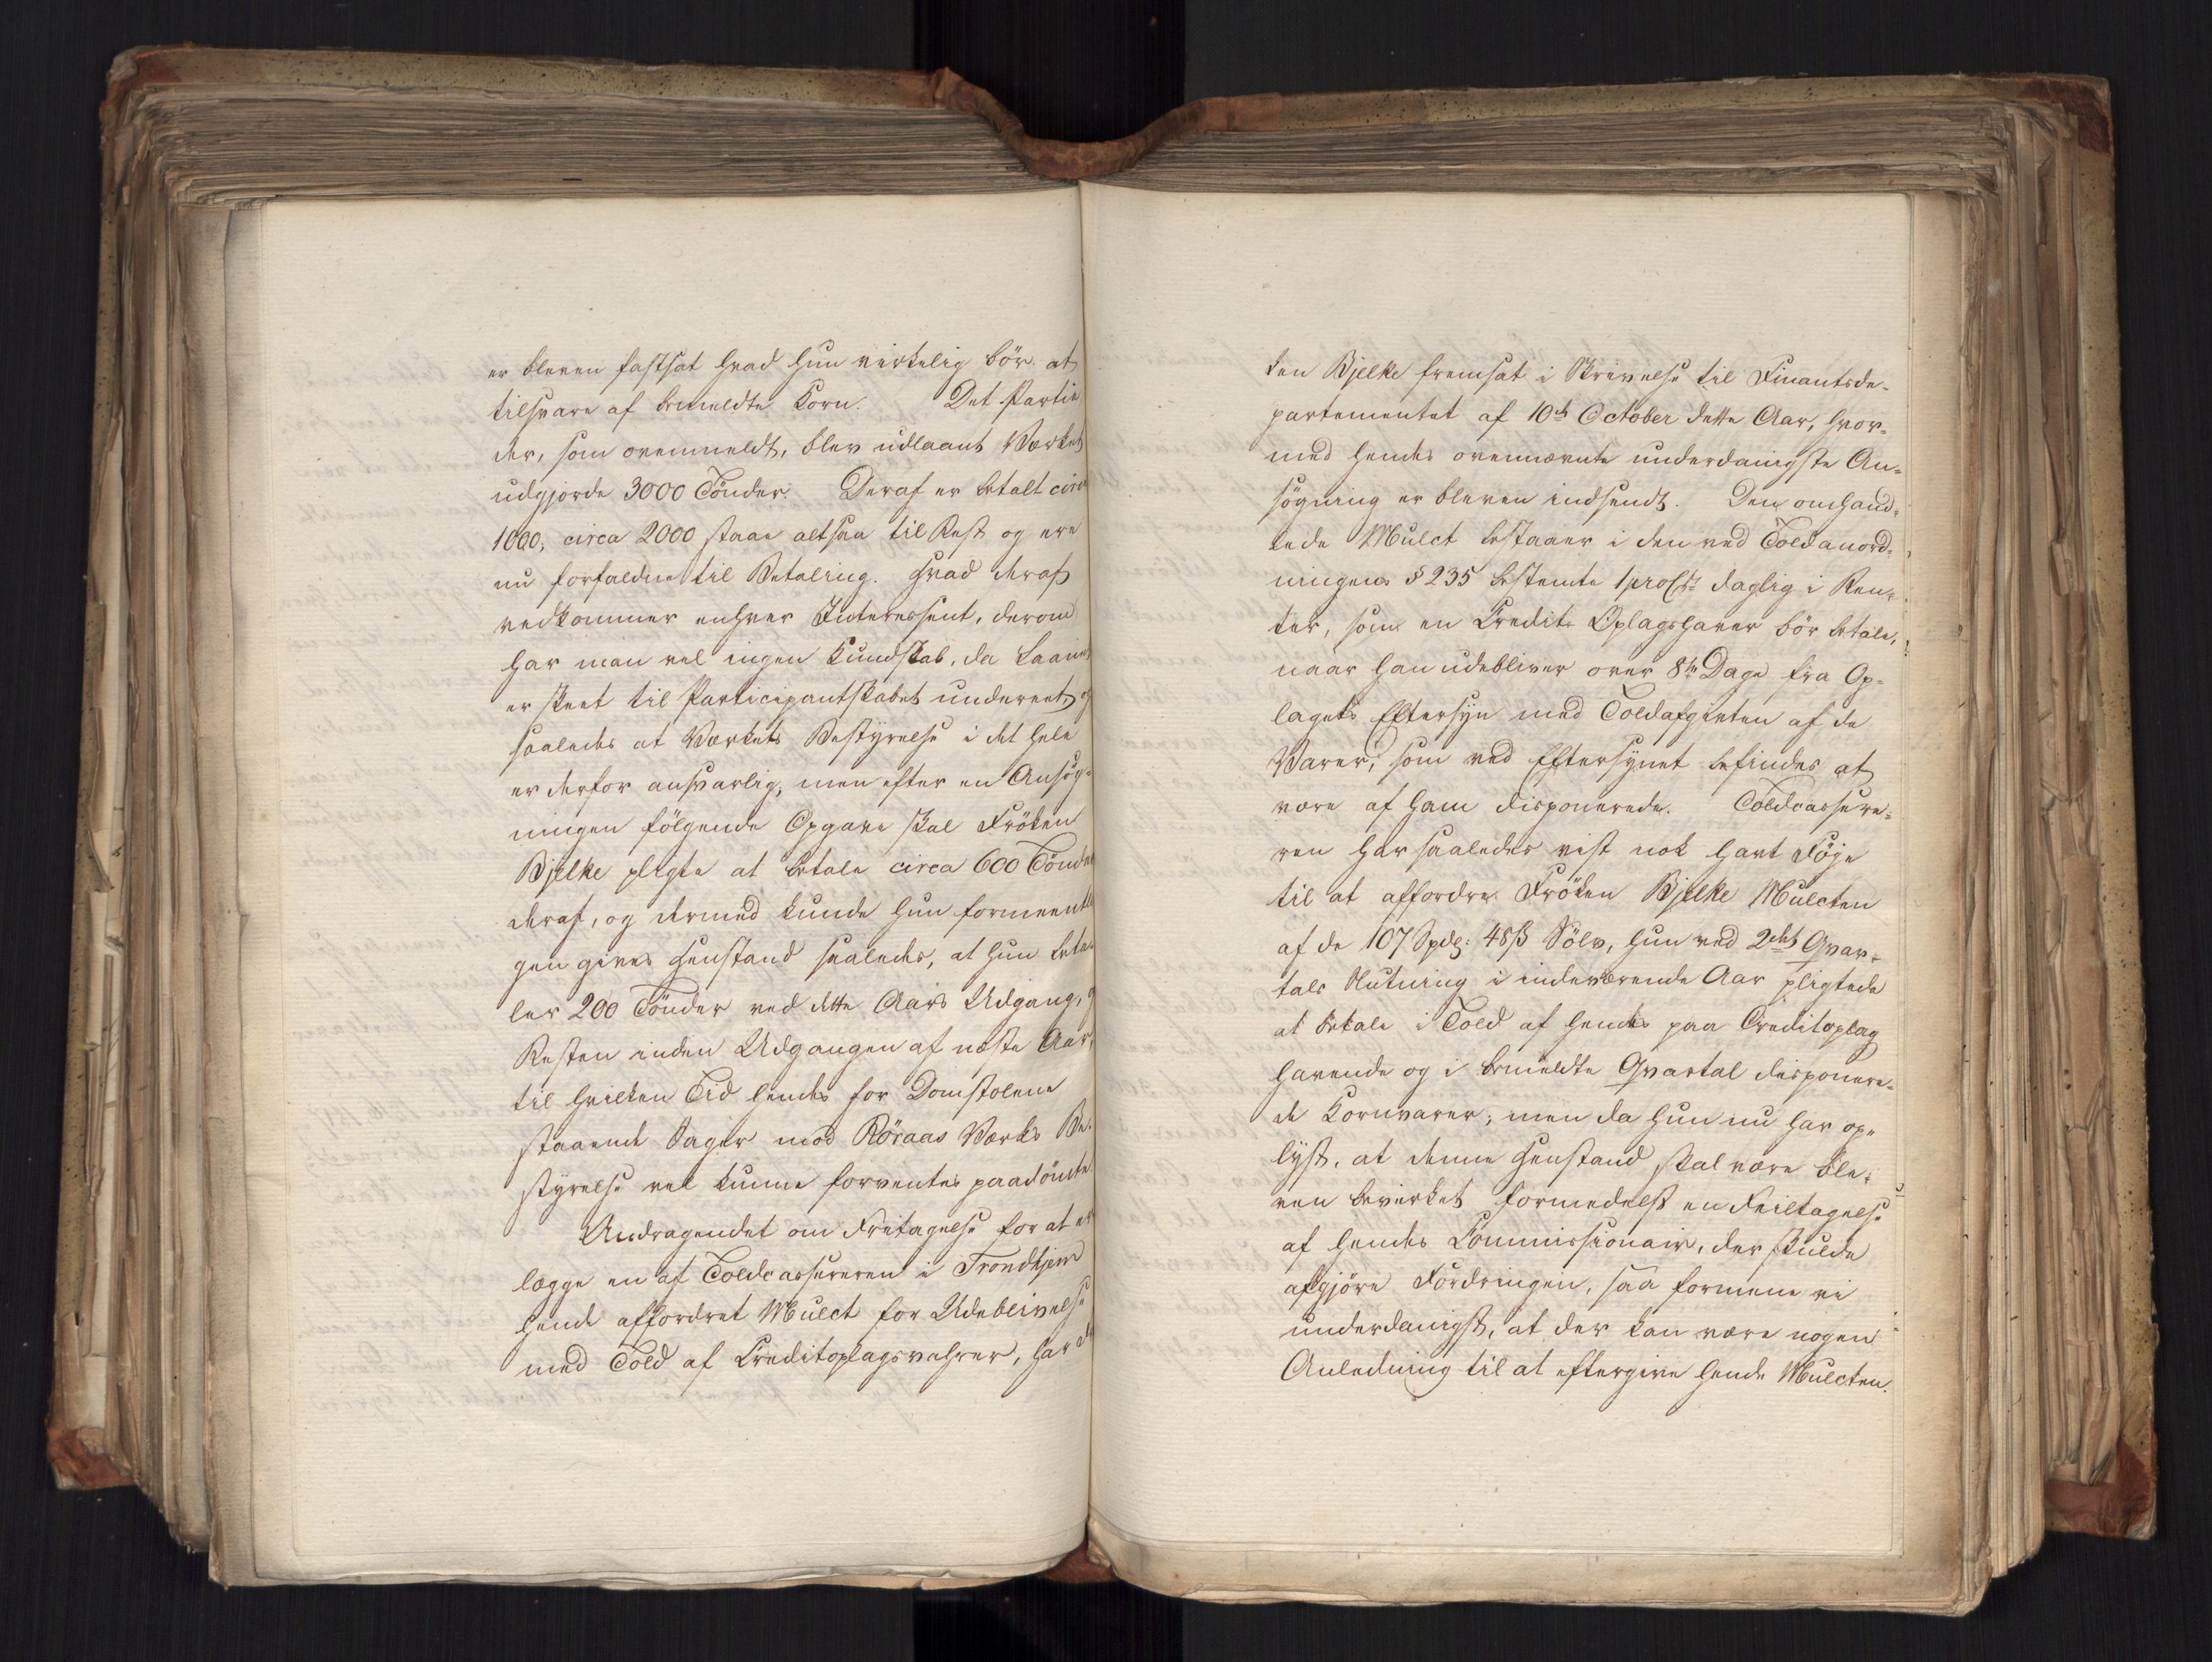 er bleven fastsat hvad hun virkelig bör at
tilsvare af bemeldte Korn. Det Partie
der, som ovenmeldt, blev udlaant Værket
udgjorde 3000 Tönder. Deraf er betalt circa
1000, circa 2000 staae altsaa til Rest og ere
nu forfaldne til Betaling. Hvad deraf
vedkommer enhver Interessent, derom
har man vel ingen Kundskab, da Laanet
er skeet til Participantskabet undereet, og
saaledes at Værkets Bestyrelse i det hele
er derfor ansvarlig, men efter en Ansög-
ningen fölgende Opgave skal Fröken
Bjelke pligte at betale circa 600 Tönder
deraf, og dermed kunde hun formeentli
gen gives Henstand saaledes, at hun beta-
ler 200 Tönder ved dette Aars Udgang, og
Resten inden Udgangen af næste Aar,
til hvilken Tid hendes for Domstolene
staaende Sager mod Röraas Værks Be-
styrelse vel kunne forventes paadömte.
Andragendet om Fritagelse for at er
lægge en af Toldcassereren i Trondhjem
hende affordret Mulct for Udeblivelse
med Told af Creditoplagsvahrer, har
ken Bjelke fremsat i Skrivelse til Finantsde-
partementet af 10de October dette Aar, hvor-
med hendes ovennævnte underdanigste An-
sögning er bleven indsendt. Den omhand-
lede Mulct bestaaer i den ved Toldanord-
ningens § 235 bestemte 1 pro Ct daglig i Ren-
ter, som en Credit-Oplagshaver bör betale,
naar han udebliver over 8te Dage fra Op-
lagets Eftersyn med Toldafgivten af de
Varer, som ved Eftersynet befindes at
være af ham disponerede. Toldcassere-
ren har saaledes vist nok havt Föje
til at affordre Fröken Bjelke Mulcten
af de 107 Spdlr: 48 ß Sölv, hun ved 2det Qvar-
tals Slutning i indeværende Aar pligtede
at betale i Told af hendes paa Creditoplag
havende og i bemeldte Qvartal disponere-
de Kornvarer; men da hun nu har op-
lyst, at denne Henstand skal være ble-
ven bevirket formedelst en Feiltagelse
af hendes Commissionair, der skulde
afgjöre Fordringen, saa formene vi
underdanigst, at der kan være nogen
Anledning til at eftergive hende Mulcten.